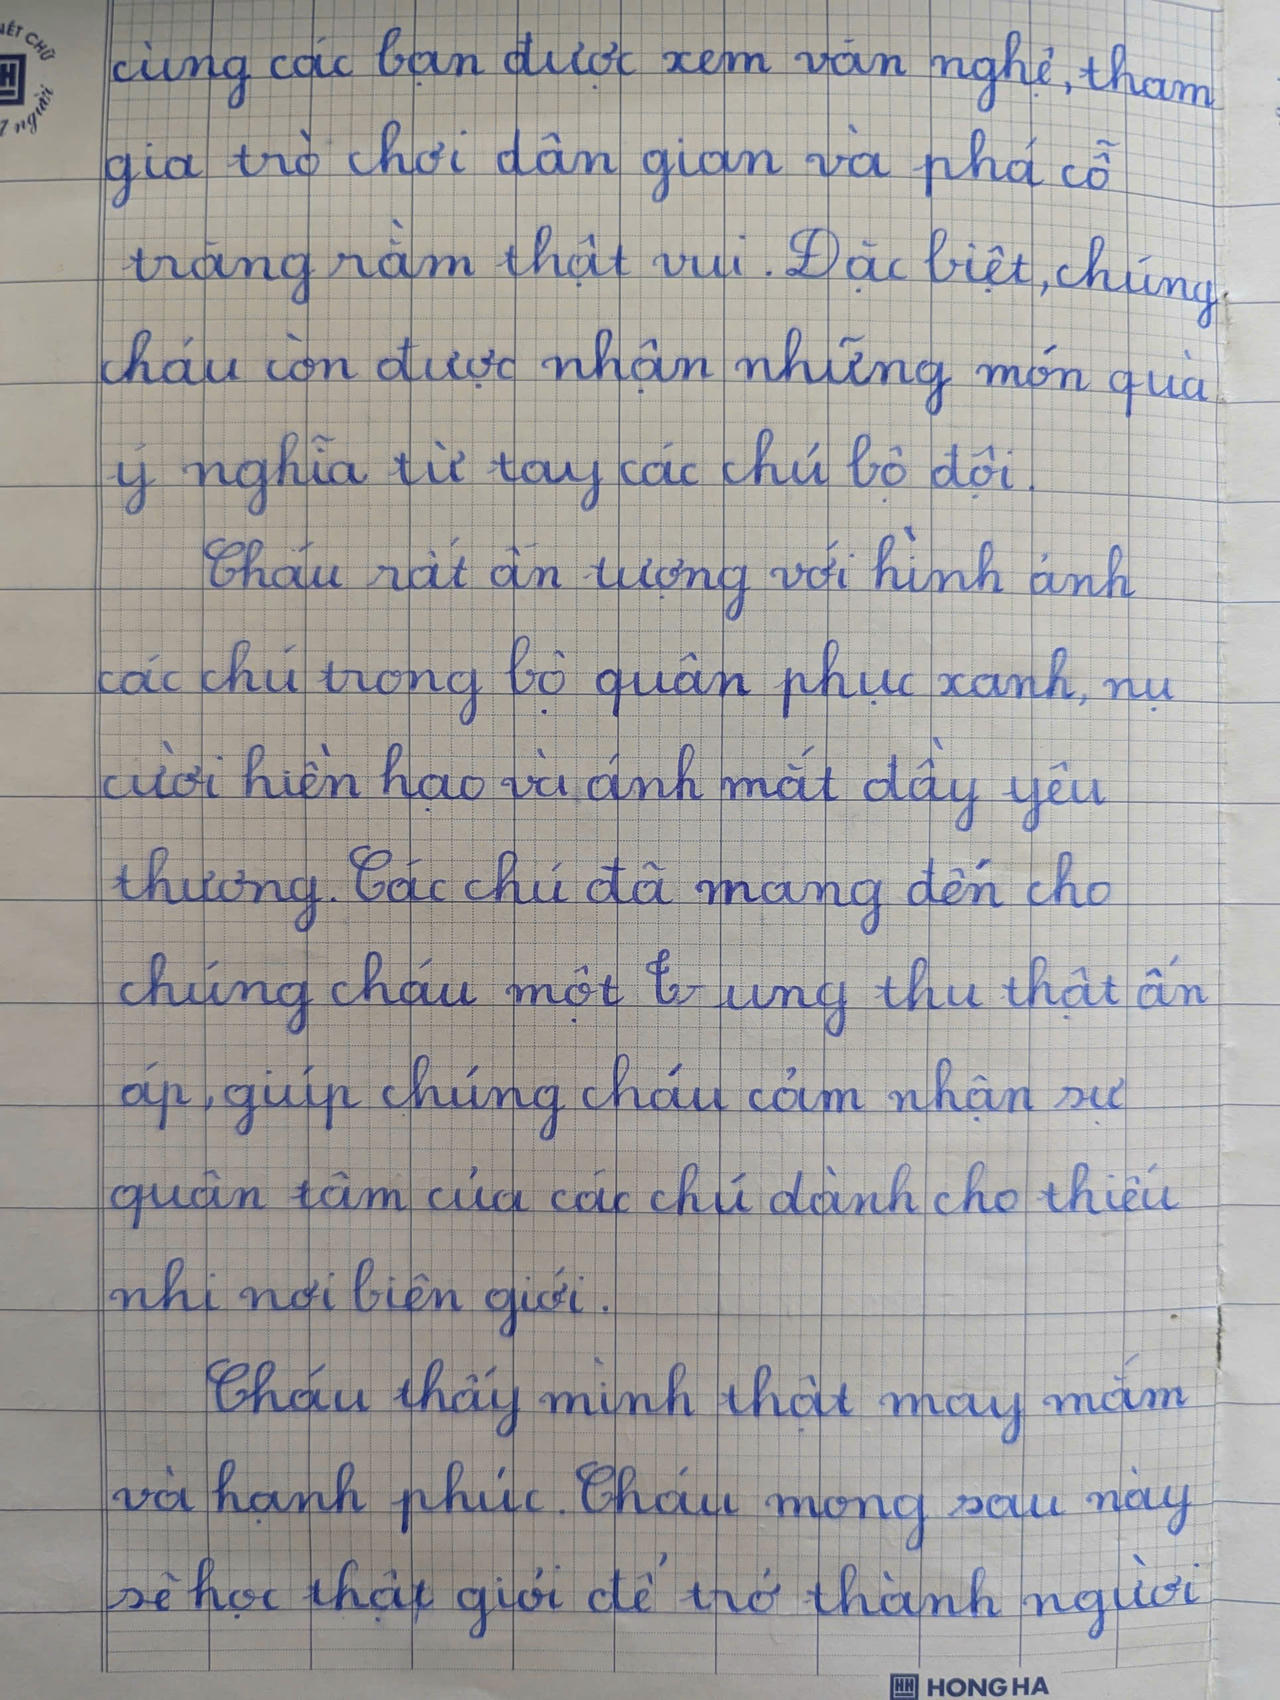 NÉT CHỮ
H
người
cùng các bạn được xem văn nghệ, tham
gia trò chơi dân gian và phá cỗ
trăng rằm thật vui. Đặc biệt, chúng
cháu còn được nhận những món quà
ý nghĩa từ tay các chú bộ đội.
Cháu rất ấn tượng với hình ảnh
các chú trong bộ quân phục xanh, nụ
cười hiền hạo và ánh mắt đầy yêu
thương. Các chú đã mang đến cho
chúng cháu một trung thu thật ấn
áp, giúp chúng cháu cảm nhận sự
quân tâm của các chú dành cho thiếu
nhi nơi biên giới.
Cháu thấy mình thật may mắm
và hạnh phúc. Cháu mong sau này
sẽ học thật giỏi để trở thành người
HH HONG HA